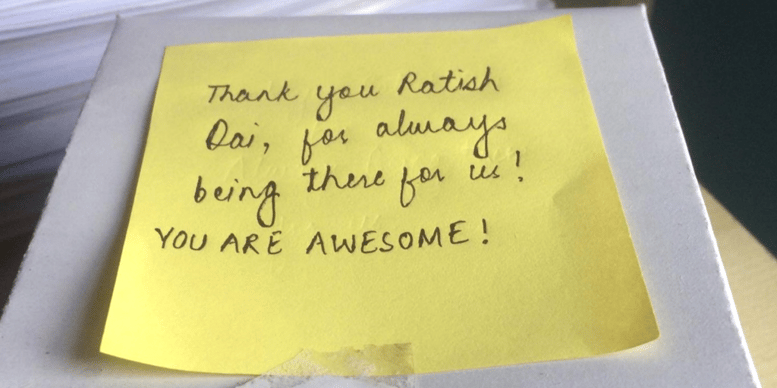 Thank you Ratish
Dai, for always
being there for us!
YOU ARE AWESOME!